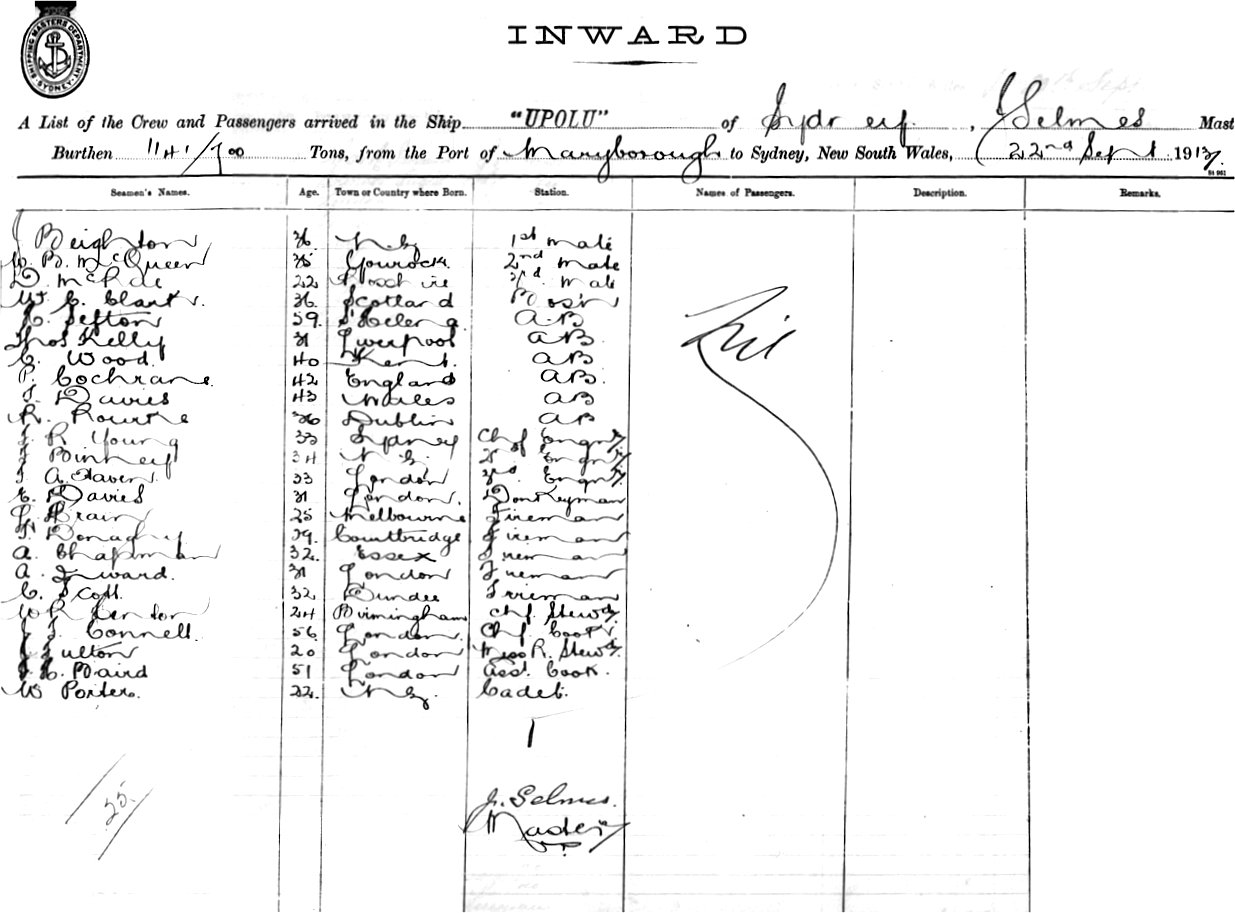 SHIPPING MASTERS DEPARTMENT SYDNEY
INWARD
A List of the Crew and Passengers arrived in the Ship "UPOLU" of Sydney, J Selmes Mast
Burthen 1141/700 Tons, from the Port of Maryborough to Sydney, New South Wales, 22nd Sept 191
Seamen's Names. Age. Town or Country where Born. Station. Names of Passengers. Description. Remarks.
Beighton 36 N.Z. 1st Mate
W. B. McQueen 35 Gourock 2nd Mate
D. McRae 22 3rd Mate
Wm C. Clark 36 Scotland Bosn
Sefton 59 St Helena AB
Thos Kelly 31 Liverpool AB
C. Wood 40 Kent. AB
P. Cochrane. 42 England AB.
J. Davies 43 Wales AB
R. Rourke 36 Dublin AB
J R Young 33 Sydney Chf Engnr
J Binney 34 N Z. 2 Engnr
J A. 33 London 3rd Engnr
E. Davies 31 London. Donkeyman
25 Melbourne Fireman
39. Coatbridge Fireman
A. Chapman 32. Essex Fireman
A. Inward. 31 London Fireman
C. Scott. 32 Dundee Fireman
W R 24 Birmingham Chf. Stewd
J. Connell. 56 London. Chf. Cook
J Fulton 20 London Mess R. Stewd.
J. C. Baird 51 London Asst. Cook.
W Porter. 22. N Z. Cadet.
Nil
25.
J. Selmes.
Master